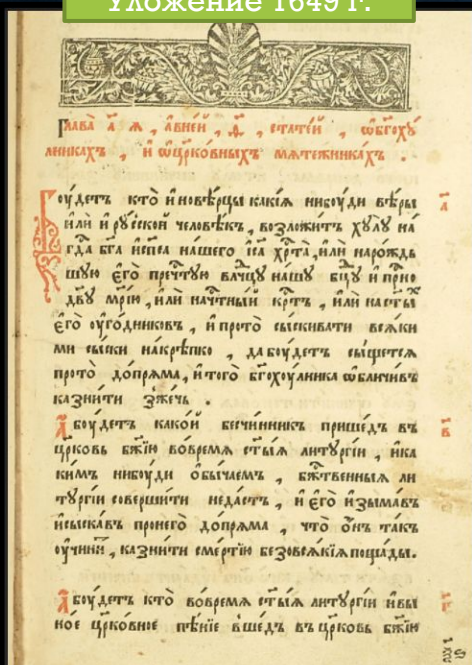 Уложение 1649 г.
Глава̀ а҃ я , авне́й , ѳ҃ , стате́й , ѡбг҃охꙋ́
лникахъ , и҆ ѡцр҃ко́вныхъ мѧте́жникахъ .
Бꙋ́детъ кто̀ и҆новѣ́рцы какі́ѧ нибꙋ́ди вѣ́ры
и҆лѝ и҆рꙋ́сской человѣ́къ , возложи́тъ хꙋлꙋ̀ на́
гд҃а бг҃а и҆сп҃са на́шего і҆с҃а хрт҃а̀ , и҆лѝ наро́ждь
шꙋю є҆го̀ пречт҃ꙋю влчц҃ꙋ на́шꙋ бц҃ꙋ и҆ прн҃о
дв҃ꙋ мр҃і́ю , и҆лѝ начт҃ны́й крт҃ъ , и҆лѝ наст҃ы́хъ
є҆го̀ оу҆го́дниковъ , и҆ прото̀ сы́скивати всѧ́ки
ми сы́ски накрѣ́пко , дабꙋ́детъ сы́щетсѧ
прото̀ допрѧ́ма , и҆того̀ бг҃охꙋ́лника ѡбличи́въ
казни́ти зже́чь .
А҆бꙋ́детъ како́й бесчи́нникъ прише́дъ въ
цр҃ковь бж҃їю вовре́мѧ ст҃ы́ѧ литꙋргі́и , и҆ ка
ки́мъ нибꙋ́ди ѻ҆бы́чаемъ , бж҃твенныѧ ли
тꙋргі́и соверши́ти неда́стъ , и҆ є҆го̀ и҆зыма́въ
и҆сыска́въ пронего̀ допрѧ́ма , что̀ ѻ҆́нъ та́къ
оу҆чини́тъ , казни́ти сме́ртїю безовсѧ́кїѧ поща́ды.
А҆бꙋ́детъ кто̀ вовре́мѧ ст҃ы́ѧ литꙋргі́и и҆ вы
ное цр҃ко́вное пѣ́нїе вше́дъ въ цр҃ковь бж҃їю
а҃
в҃
г҃